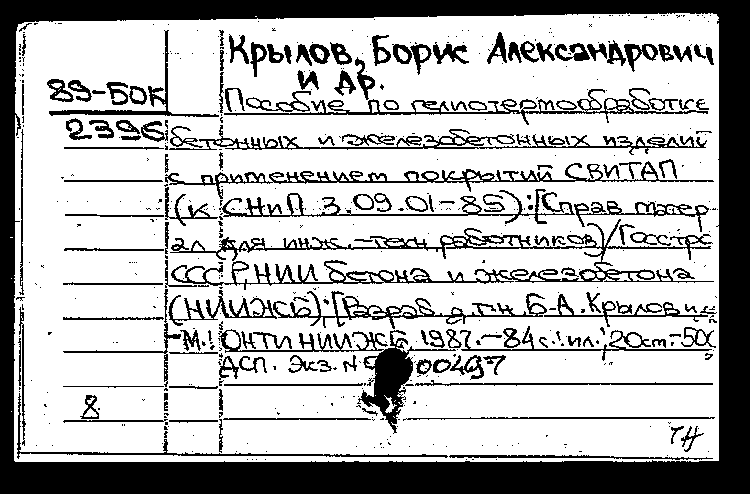 Крылов, Борис Александрович
и др.
89-БОК
2396
Пособие по гелиотермообработке
бетонных и железобетонных изделий
с применением покрытий СВИТАП
(к СНиП 3.09.01-85):[Справ матер-
ал для инж.-техн. работников)/Госстро
СССР, НИИ бетона и железобетона
(НИИЖБ);[Разраб. д.т.н. Б.А. Крылов и др
-М.: ОНТИ НИИЖБ, 1987.-84с.:ил.;20см.-500
ДСП. Экз. N 00497
8
ТН